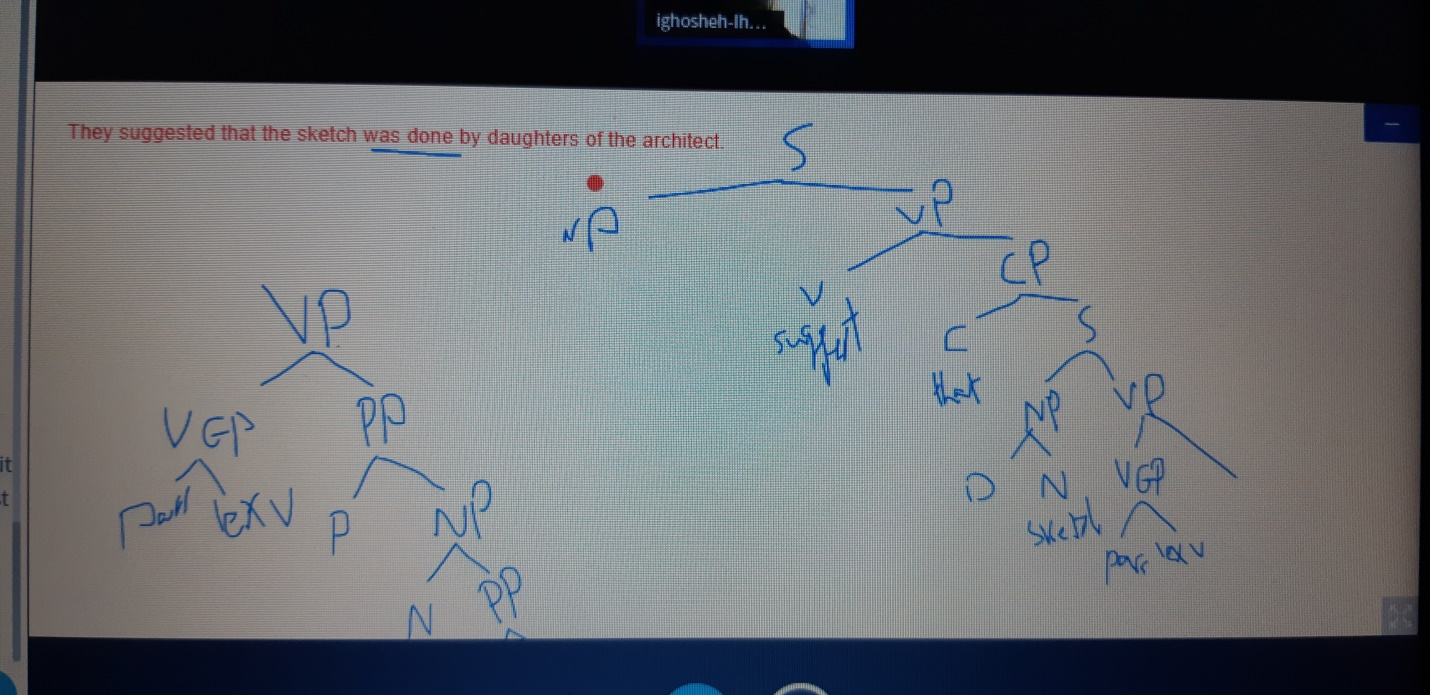 ighosheh-lh...
They suggested that the sketch was done by daughters of the architect.
S
NP VP
V CP
suggest
C S
that
NP VP
D N VGP
sketch
pass lex V
VP
VGP PP
pass lex V P NP
N PP
it
t